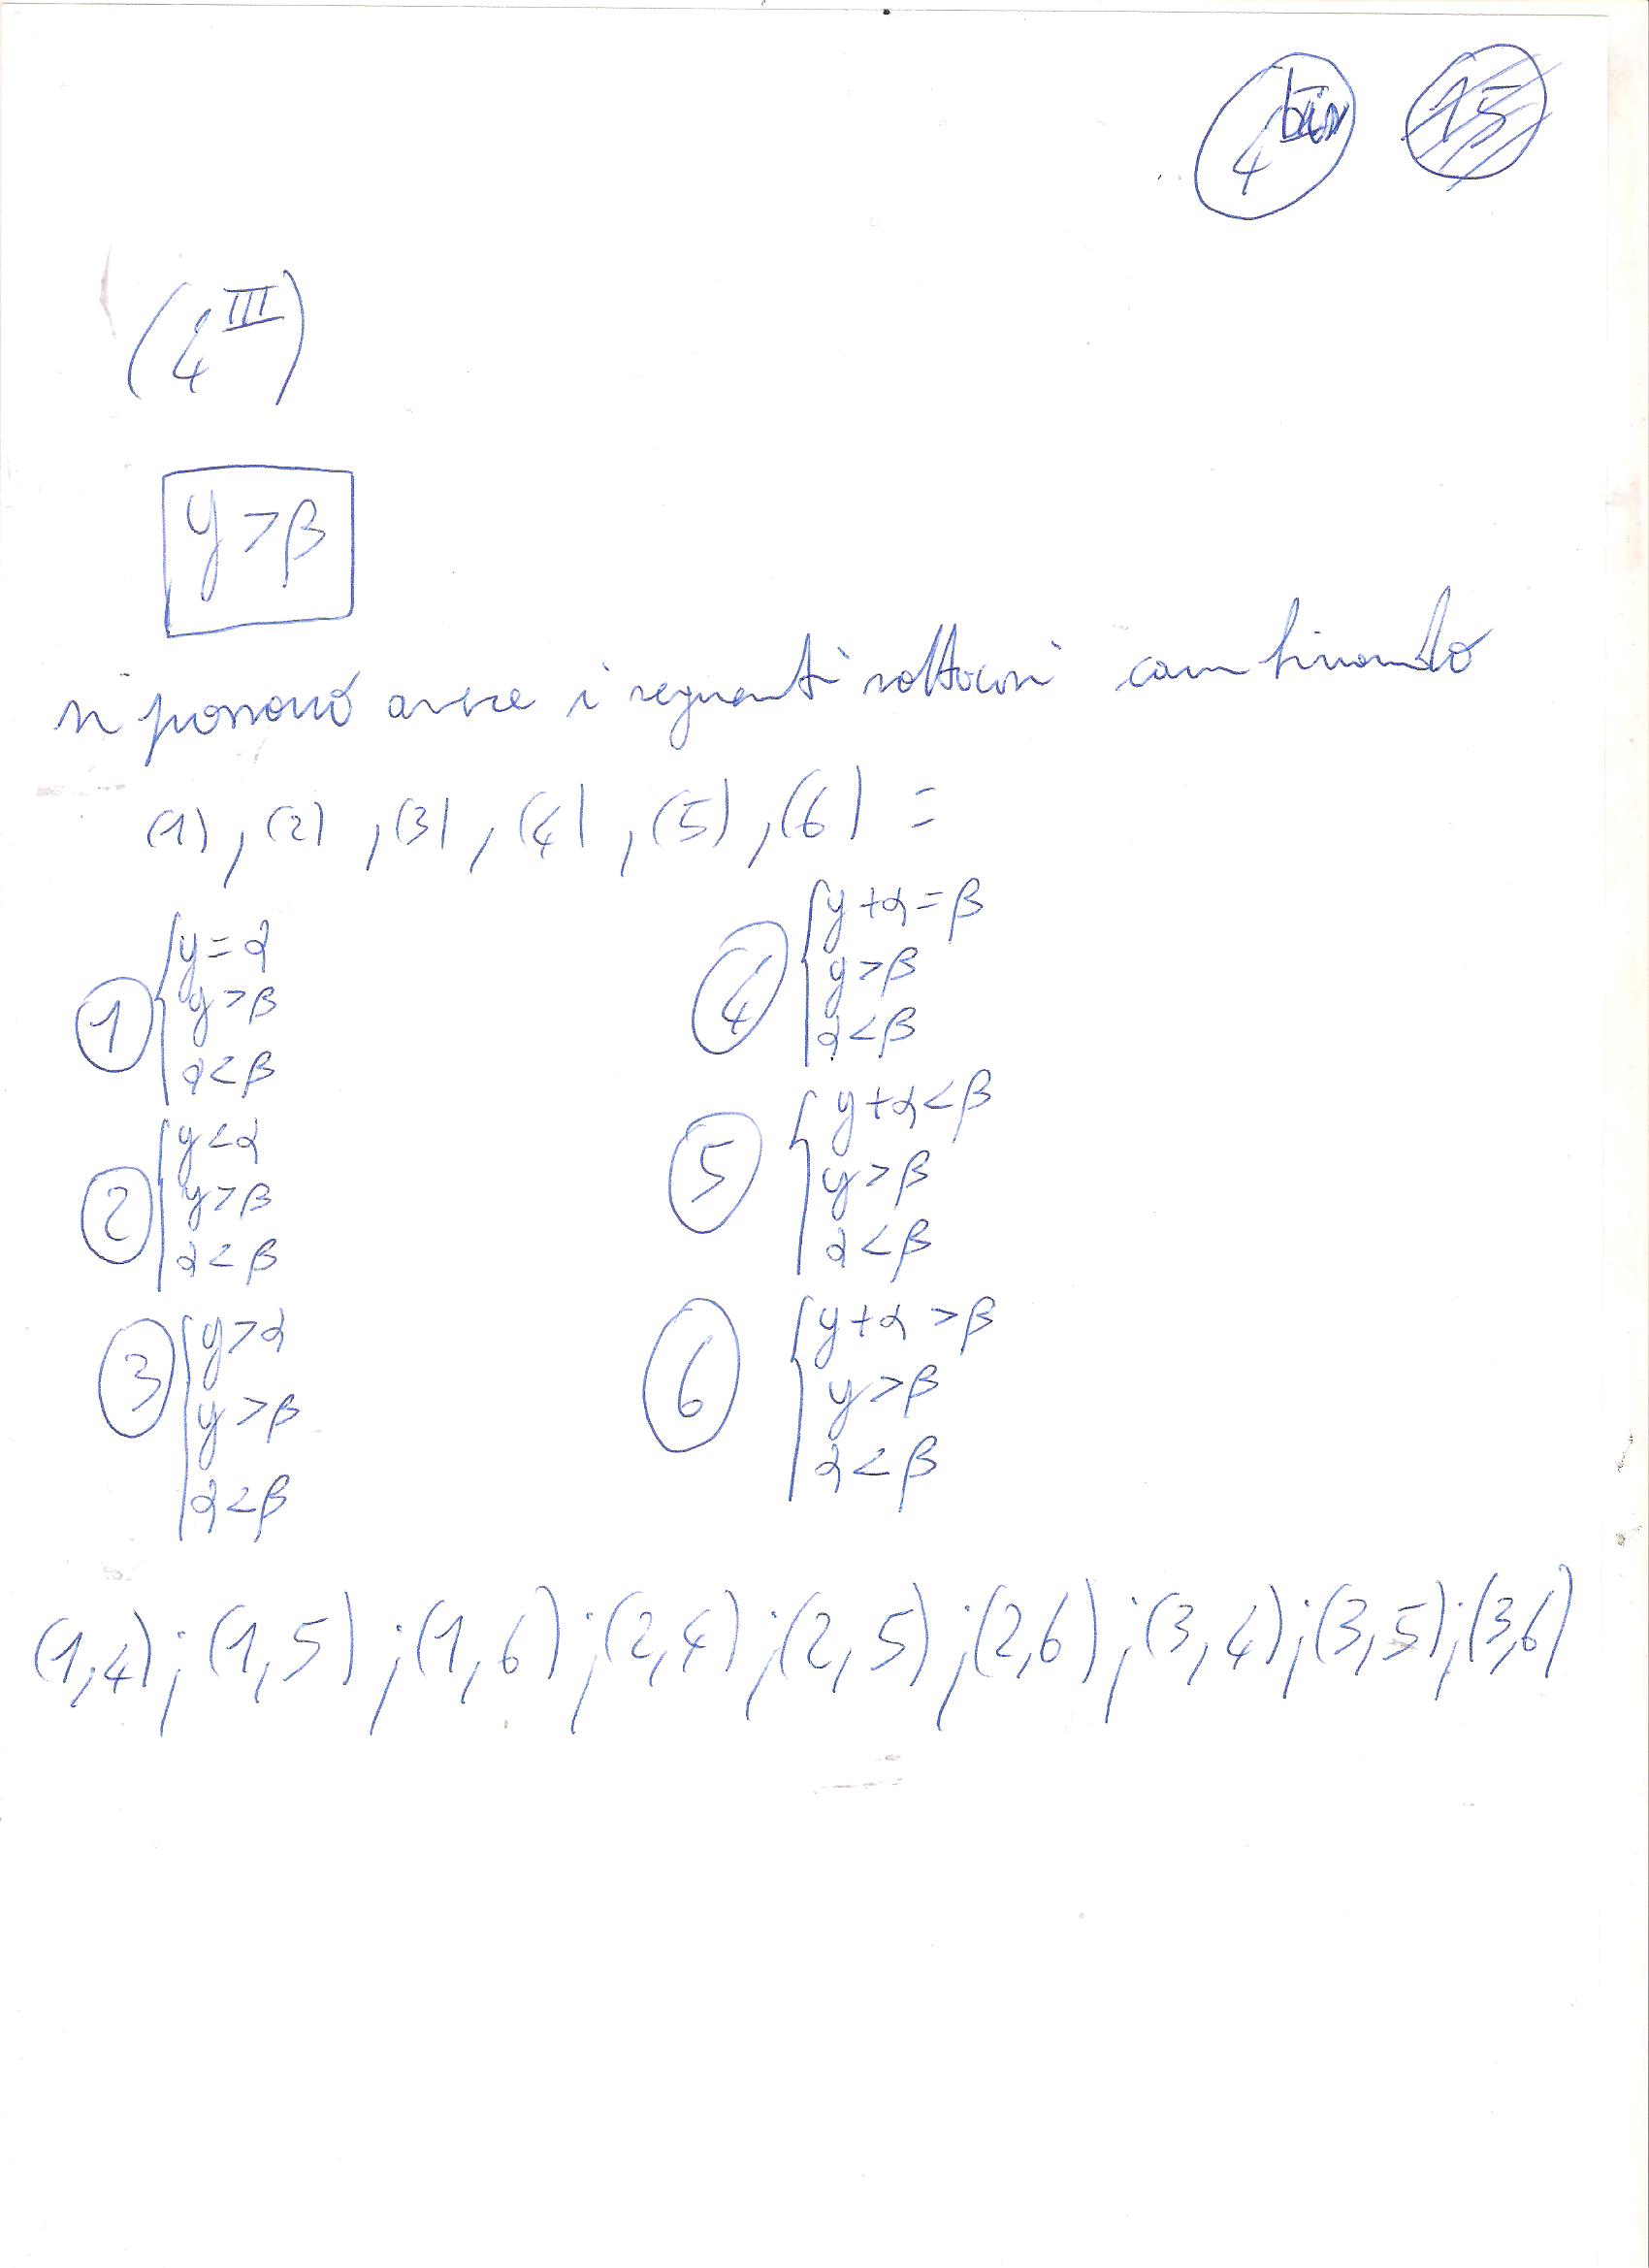 4 bis 15
(4^III)
y > β
si possono avere i seguenti sottocasi combinando
(1), (2), (3), (4), (5), (6) =
① { y = α
y > β
α < β
② { y < α
y > β
α < β
③ { y > α
y > β
α < β
④ { y + α = β
y > β
α < β
⑤ { y + α < β
y > β
α < β
⑥ { y + α > β
y > β
α < β
(1,4); (1,5); (1,6); (2,4); (2,5); (2,6); (3,4); (3,5); (3,6)